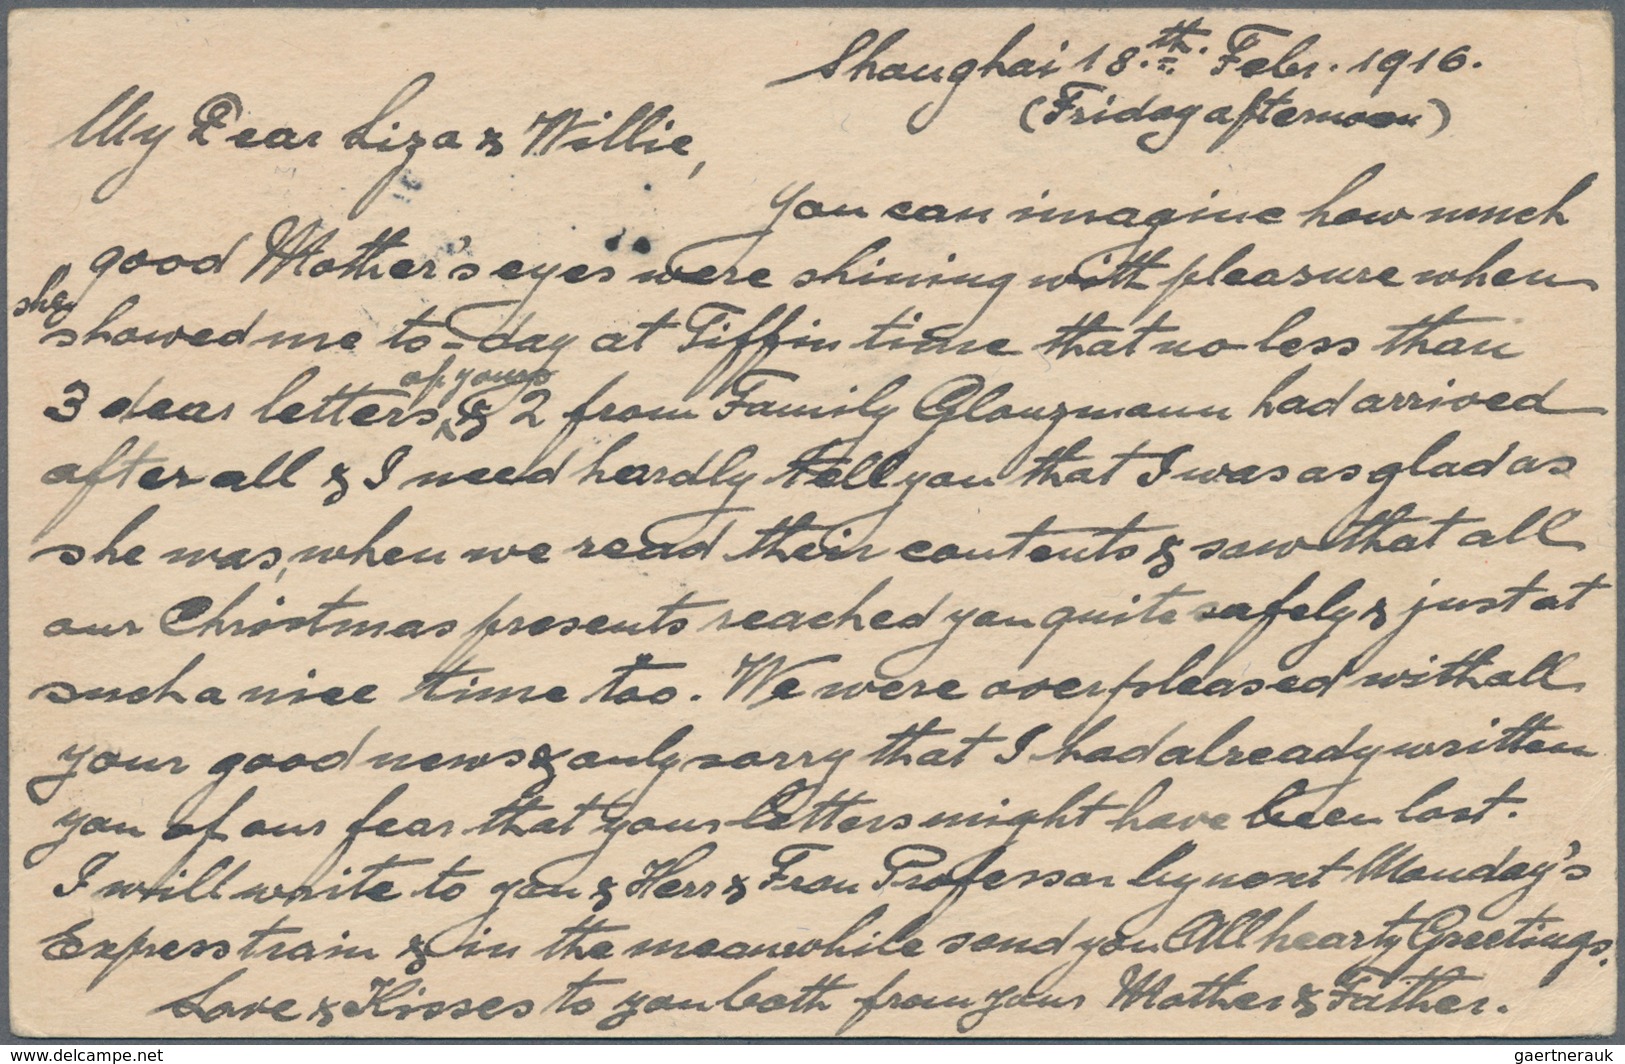 Shanghai 18.th. Febr. 1916.
(Friday afternoon)
My Dear Liza & Willie,
you can imagine how much
good Mother's eyes were shining with pleasure when
she
showed me to-day at Tiffin time that no less than
of yours
3 dear letters, & 2 from Family Glanzmann had arrived
after all & I need hardly tell you that I was as glad as
she was, when we read their contents & saw that all
our Christmas presents reached you quite safely & just at
such a nice time too. We were overpleased with all
your good news & only sorry that I had already written
you of our fear that your letters might have been lost.
I will write to you & Herr & Frau Professor by next Monday's
Express train & in the meanwhile send you All hearty Greetings.
Love & Kisses to you both from your Mother & Father.
www.delcampe.net
gaertnerauk